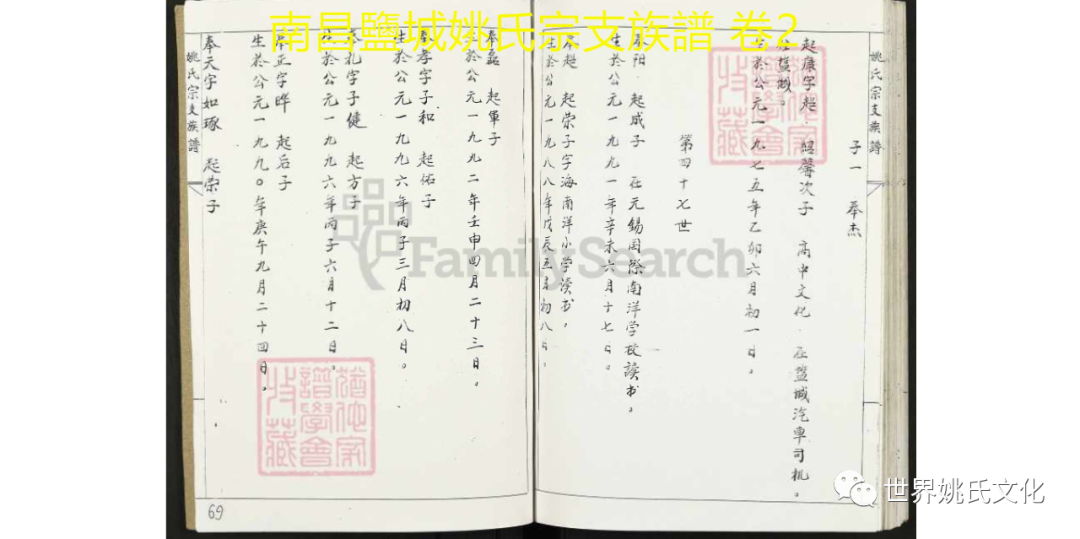 南昌鹽城姚氏宗支族譜 卷2
姚氏宗支族譜
子一 奉杰
起康字起 紹馨次子 高中文化 在盐城汽車司机。
盐城。
生於公元一九七五年乙卯六月初一日。
第四十七世
奉阳 起成子 在元錫国際南洋学校讀书。
生於公元一九九一年辛未六月十七日。
奉起 起荣子字海南洋小学读书，
生於公元一九八八年戊辰五月初八日。
奉 起軍子
生於公元一九九二年壬申四月二十三日。
奉孝字子和 起佑子
生於公元一九九六年丙子三月初八日。
奉礼字子健 起方子
生於公元一九九六年丙子六月十二日。
奉正字晔 起后子
生於公元一九九〇年庚午九月二十四日。
奉天字如琢 起荣子
姚氏宗支族譜
69
猶他家
譜學會
收藏
猶他家
譜學會
收藏
FamilySearch
世界姚氏文化